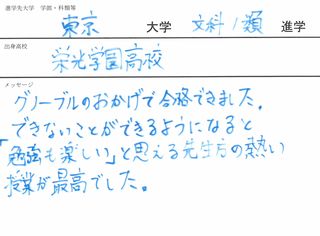 進学先大学 学部・科類等
東京 大学 文科1類 進学
出身高校
栄光学園高校
メッセージ
グノーブルのおかげで合格できました。
できないことができるようになると
「勉強も楽しい」と思える先生方の熱い
授業が最高でした。